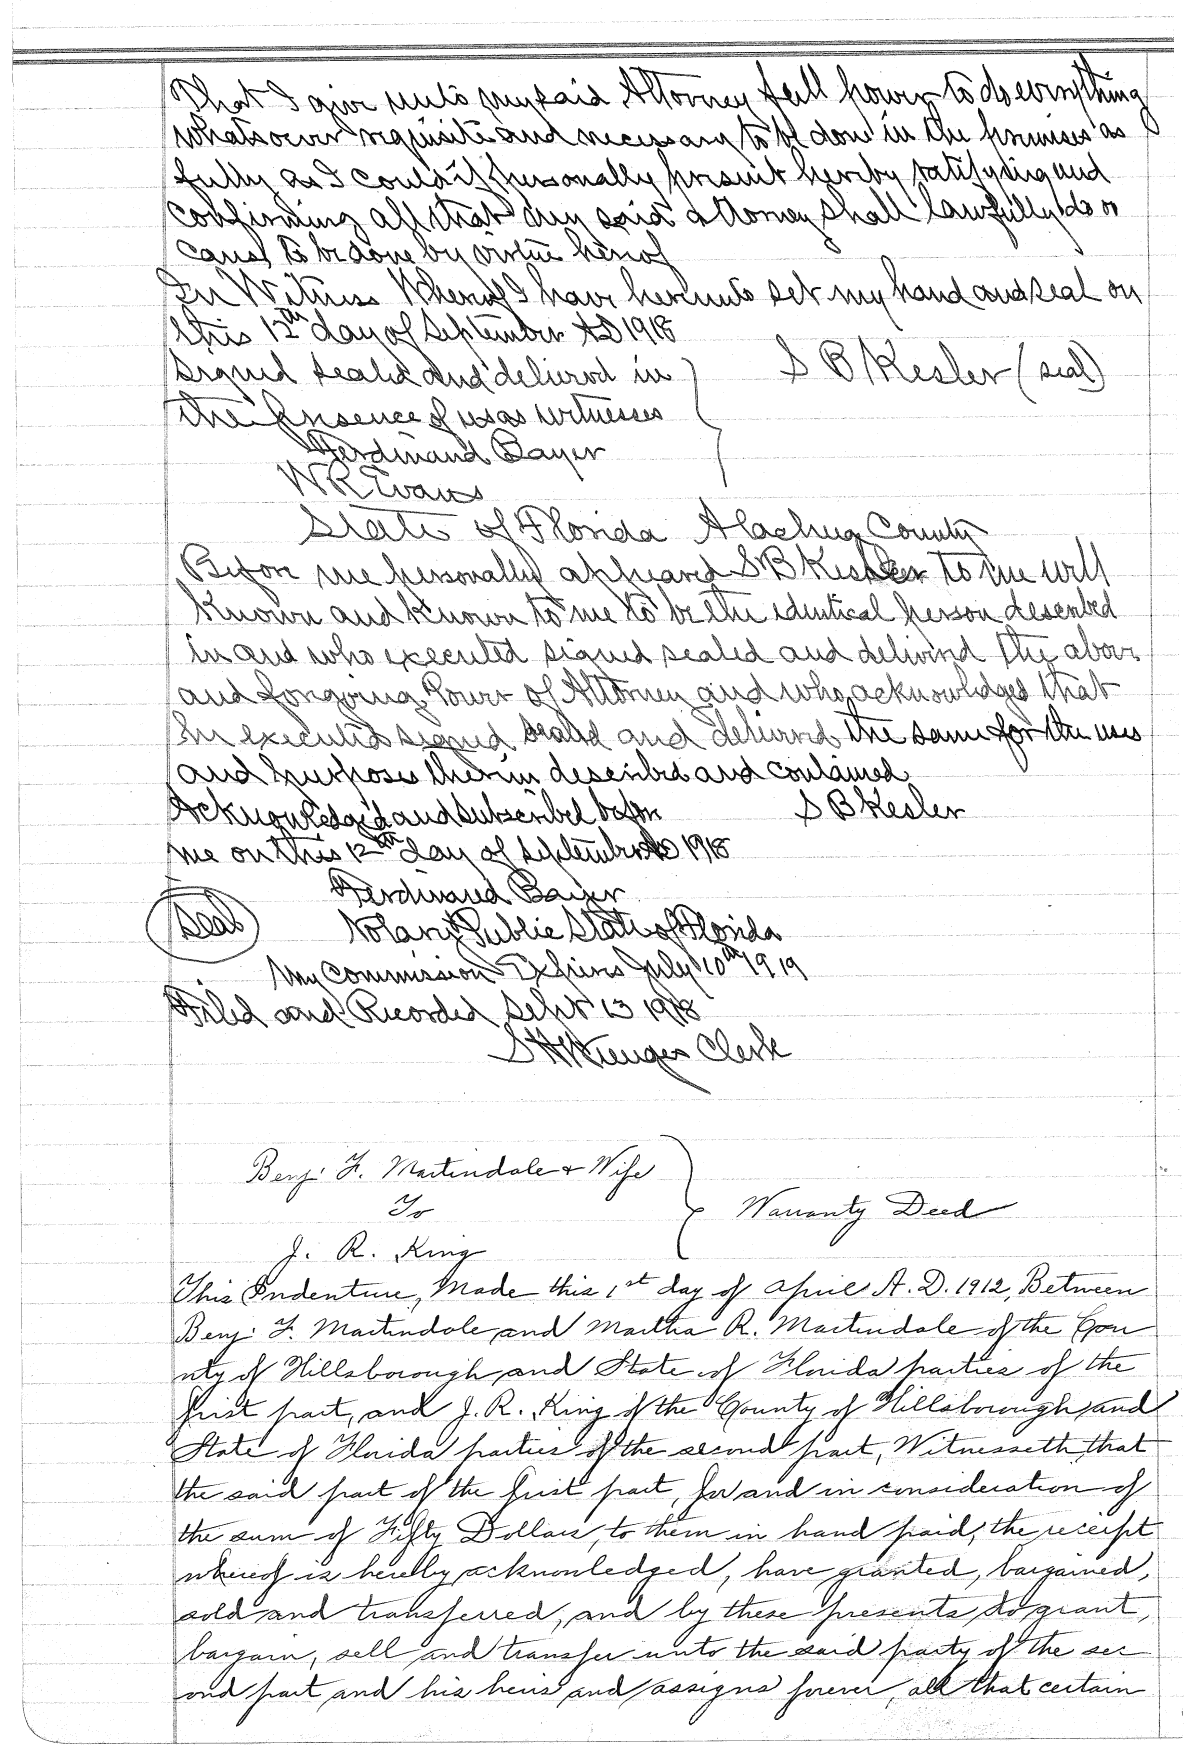 That I give unto my said Attorney full power to do everything
whatsoever requisite and necessary to be done in the premises as
fully as I could if personally present hereby ratifying and
confirming all that my said attorney shall lawfully do or
cause to be done by virtue hereof
In Witness Whereof I have hereunto set my hand and seal on
this 12th day of September AD 1918
Signed sealed and delivered in
S B Kesler (seal)
the presence of us as witnesses
Ferdinand Bayer
W R Evans
State of Florida Alachua County
Before me personally appeared S B Kesler to me well
known and known to me to be the identical person described
in and who executed signed sealed and delivered the above
and foregoing Power of Attorney and who acknowledges that
he executed signed sealed and delivered the same for the uses
and purposes therein described and contained
Acknowledged and subscribed before
S B Kesler
me on this 12th day of September AD 1918
Ferdinand Bayer
Seal
Notary Public State of Florida
My Commission Expires July 10th 1919
Filed and Recorded Sept 13 1918
S H Wienges Clerk
Benj. F. Martindale & Wife
To
Warranty Deed
J. R. King
This Indenture, Made this 1st day of April A. D. 1912, Between
Benj. F. Martindale and Martha R. Martindale of the Cou
nty of Hillsborough and State of Florida parties of the
first part, and J. R. King of the County of Hillsborough and
State of Florida parties of the second part, Witnesseth, that
the said part of the first part, for and in consideration of
the sum of Fifty Dollars, to them in hand paid, the receipt
whereof is hereby acknowledged, have granted, bargained,
sold and transferred, and by these presents do grant,
bargain, sell and transfer unto the said party of the sec
ond part and his heirs and assigns forever, all that certain